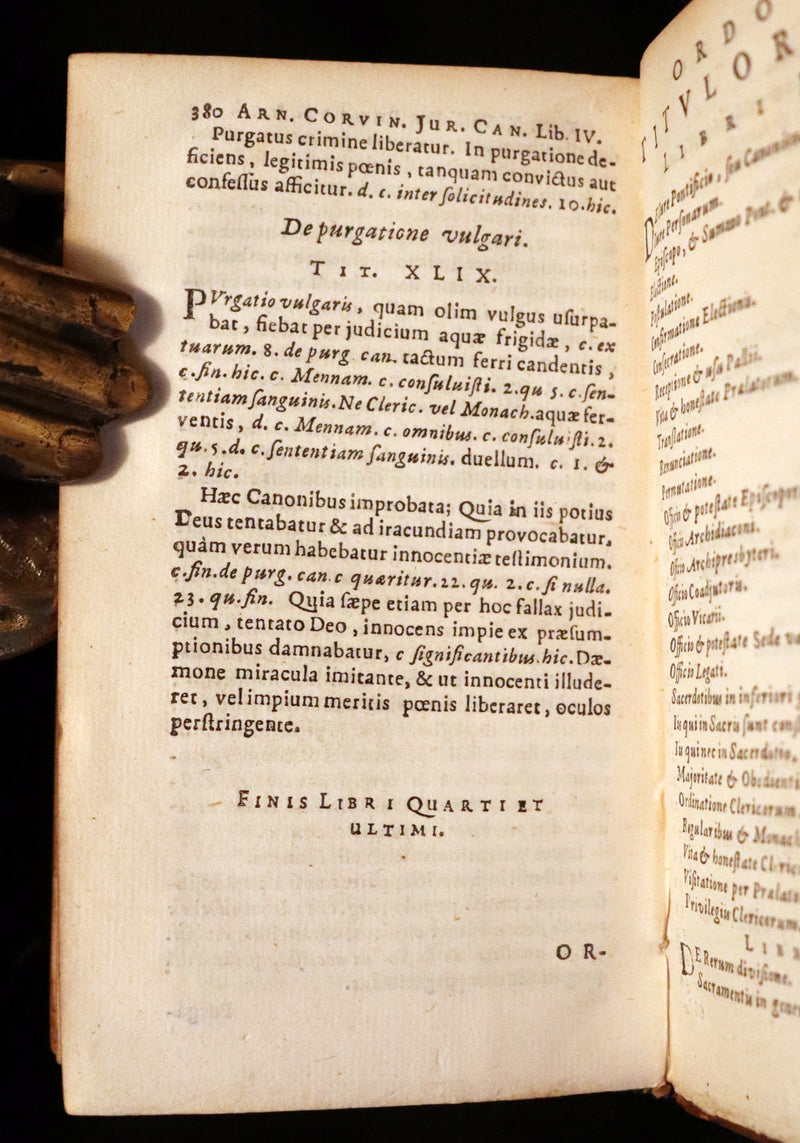 380 ARN. CORVIN. JUR. CAN. Lib. IV.
Purgatus crimine liberatur. In purgatione de-
ficiens, legitimis pœnis, tanquam convictus aut
confeſſus afficitur. d. c. inter ſolicitudines. 10. hic.
De purgatione vulgari.
TIT. XLIX.
PVrgatio vulgaris, quam olim vulgus uſurpa-
bat, fiebat per judicium aquæ frigidæ, c. ex
tuarum. 8. de purg. can. tactum ferri candentis,
c. fin. hic. c. Mennam. c. conſuluiſti. 2. qu 5. c. ſen-
tentiam ſanguinis. Ne Cleric. vel Monach. aquæ fer-
ventis, d. c. Mennam. c. omnibus. c. conſuluiſti. 2.
qu. 5. d. c. ſententiam ſanguinis. duellum. c. 1. &
2. hic.
Hæc Canonibus improbata; Quia in iis potius
Deus tentabatur & ad iracundiam provocabatur,
quàm verum habebatur innocentiæ teſtimonium.
c. fin. de purg. can. c quæritur. 22. qu. 2. c. ſi nulla.
23. qu. fin. Quia ſæpe etiam per hoc fallax judi-
cium, tentato Deo, innocens impie ex præſum-
ptionibus damnabatur, c ſignificantibus. hic. Dæ-
mone miracula imitante, & ut innocenti illude-
ret, vel impium meritis pœnis liberaret, oculos
perſtringente.
FINIS LIBRI QUARTI ET
ULTIMI.
OR-
ORDO
TITVLOR
LIBRI
Iure Pontificio,
Iure Perſonarum.
Epiſcopo, & Summo Pont. &
Electione.
Poſtulatione.
Confirmatione Electionis.
Conſecratione.
Receptione & uſu Pallii.
Vita & honeſtate Prælatorum.
Tranſlatione.
Renunciatione.
Permutatione.
Officio & poteſtate Epiſcopor
Officio Archidiaconi.
Officio Archipresbyteri.
Officio Coadjutoris.
Officio Vicarii.
Officio & poteſtate Sede va
Officio Legati.
Sacerdotibus in inferiori
Iis qui in Sacris ſunt con
Iis qui nec in Sacerdotio,
Majoritate & Obedienti
Ordinatione Clericorum
Regularibus & Monac
Vita & honeſtate Cleric
Viſitatione per Prælatos
Privilegiis Clericorum
LIB
DE Rerum diviſione.
Sacramentis in genere